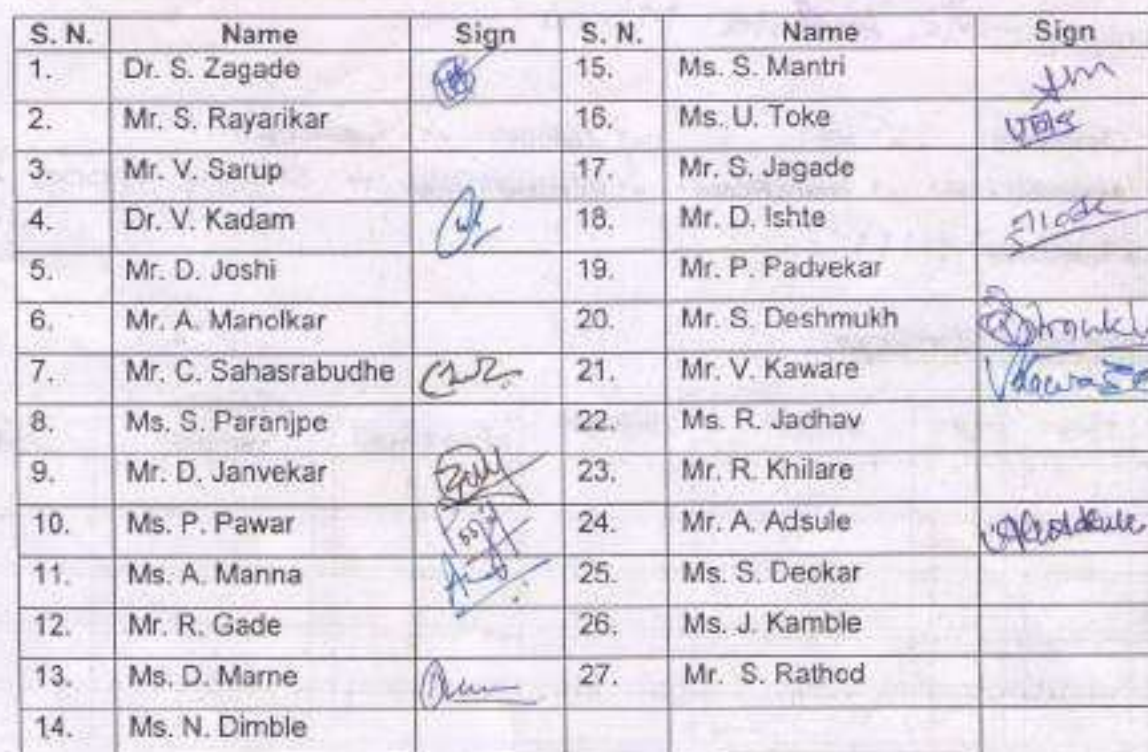 S. N. Name Sign S. N. Name Sign
1. Dr. S. Zagade 15. Ms. S. Mantri
2. Mr. S. Rayarikar 16. Ms. U. Toke
3. Mr. V. Sarup 17. Mr. S. Jagade
4. Dr. V. Kadam 18. Mr. D. Ishte
5. Mr. D. Joshi 19. Mr. P. Padvekar
6. Mr. A. Manolkar 20. Mr. S. Deshmukh
7. Mr. C. Sahasrabudhe 21. Mr. V. Kaware
8. Ms. S. Paranjpe 22. Ms. R. Jadhav
9. Mr. D. Janvekar 23. Mr. R. Khilare
10. Ms. P. Pawar 24. Mr. A. Adsule
11. Ms. A. Manna 25. Ms. S. Deokar
12. Mr. R. Gade 26. Ms. J. Kamble
13. Ms. D. Marne 27. Mr. S. Rathod
14. Ms. N. Dimble